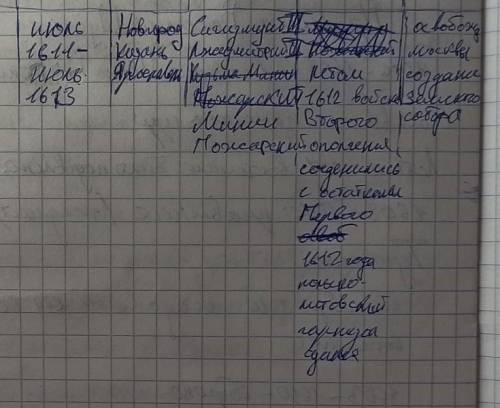 июль Новгород Сигизмунд III освобожд
1611- Казань Лжедмитрий II Пожарский москвы
июль Ярославль Кузьма Минин летом создание
1613 Пожарский 1612 войска Земского
Минин Второго собора
Пожарский ополчения
соеденились
с остатками
Первого
1612 года
польско-
литовский
гарнизон
сдался